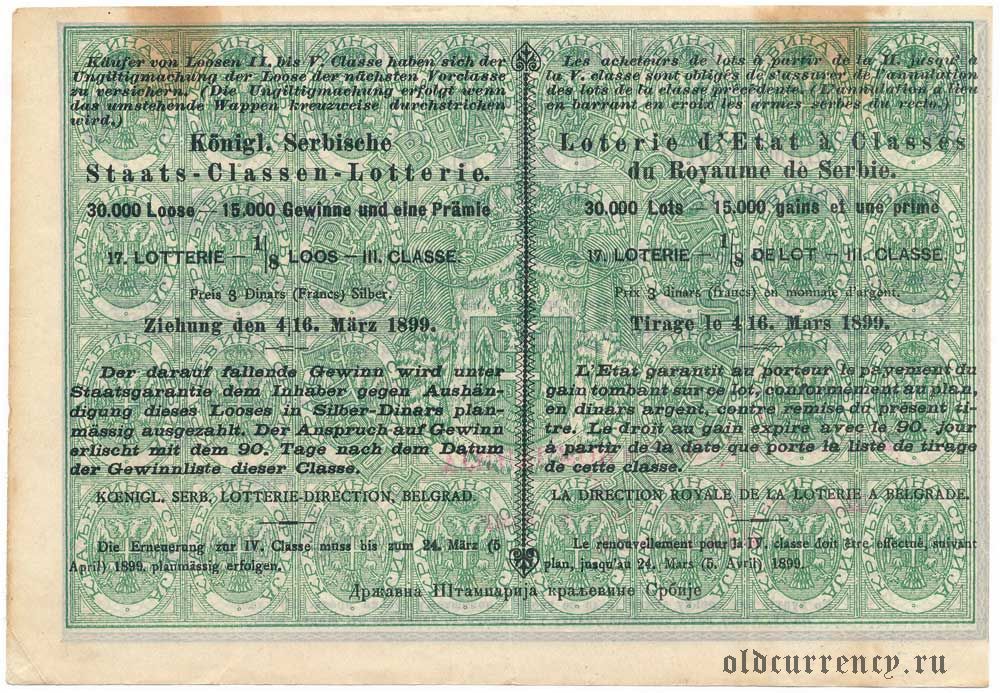 Käufer von Loosen II. bis V. Classe haben sich der
Ungiltigmachung der Loose der nächsten Vorclasse
zu versichern. (Die Ungiltigmachung erfolgt wenn
das umstehende Wappen kreuzweise durchstrichen
wird.)
Königl. Serbische
Staats-Classen-Lotterie.
30.000 Loose — 15.000 Gewinne und eine Prämie
17. LOTTERIE — 1/8 LOOS — III. CLASSE.
Preis 3 Dinars (Francs) Silber.
Ziehung den 4|16. März 1899.
Der darauf fallende Gewinn wird unter
Staatsgarantie dem Inhaber gegen Aushän-
digung dieses Looses in Silber-Dinars plan-
mässig ausgezahlt. Der Anspruch auf Gewinn
erlischt mit dem 90. Tage nach dem Datum
der Gewinnliste dieser Classe.
KŒNIGL. SERB, LOTTERIE-DIRECTION, BELGRAD.
Die Erneuerung zur IV. Classe muss bis zum 24. März (5
April) 1899. planmässig erfolgen.
Les acheteurs de lots à partir de la II. jusqu' a
la V. classe sont obligés de s'assurer de l'annulation
des lots de la classe précedente. (L'annulation a lieu
en barrant en croix les armes serbes du recto.)
Loterie d'Etat à Classes
du Royaume de Serbie.
30.000 Lots — 15.000 gains et une prime
17. LOTERIE — 1/8 DE LOT — III. CLASSE.
Prix 3 dinars (francs) en monnaie d'argent.
Tirage le 4|16. Mars 1899.
L'Etat garantit au porteur le payement du
gain tombant sur ce lot, conformement au plan,
en dinars argent, contre remise du présent ti-
tre. Le droit au gain expire avec le 90. jour
à partir de la date que porte la liste de tirage
de cette classe.
LA DIRECTION ROYALE DE LA LOTERIE A BELGRADE.
Le renouvellement pour la IV. classe doit être effectué, suivant
plan, jusqu'au 24. Mars (5. Avril) 1899.
Државна Штампарија краљевине Србије
oldcurrency.ru